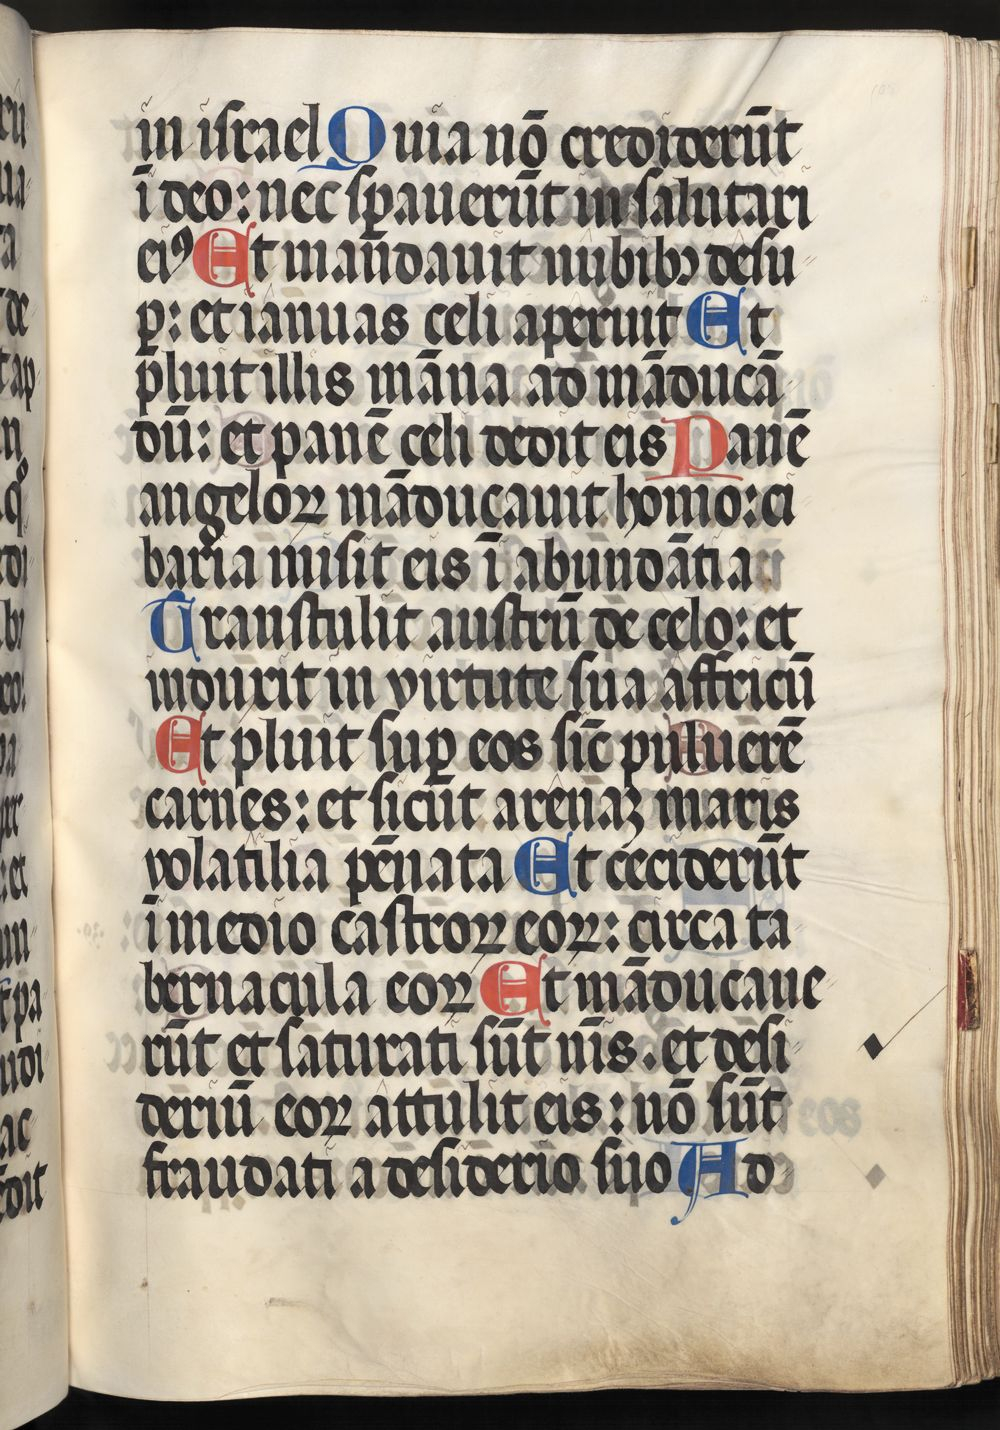 in israel Quia nō crediderūt
ī deo: nec sꝑauerūt in salutari
eiꝰ Et mandauit nubibꝫ desu
ꝑ: et ianuas celi aperuit Et
pluit illis māna ad māducā
dū: et panē celi dedit eis Panē
angeloꝝ māducauit homo: ci
baria misit eis ī abundātia
Transtulit austrū de celo: et
induxit in virtute sua affricū
Et pluit suꝑ eos sic̄ puluerē
carnes: et sicut arenaꝫ maris
volatilia pēnata Et ceciderūt
ī medio castroꝝ eoꝝ: circa ta
bernacula eoꝝ Et māducaue
rūt et saturati sūt nīs. et desi
deriū eoꝝ attulit eis: nō sūt
fraudati a desiderio suo Ad